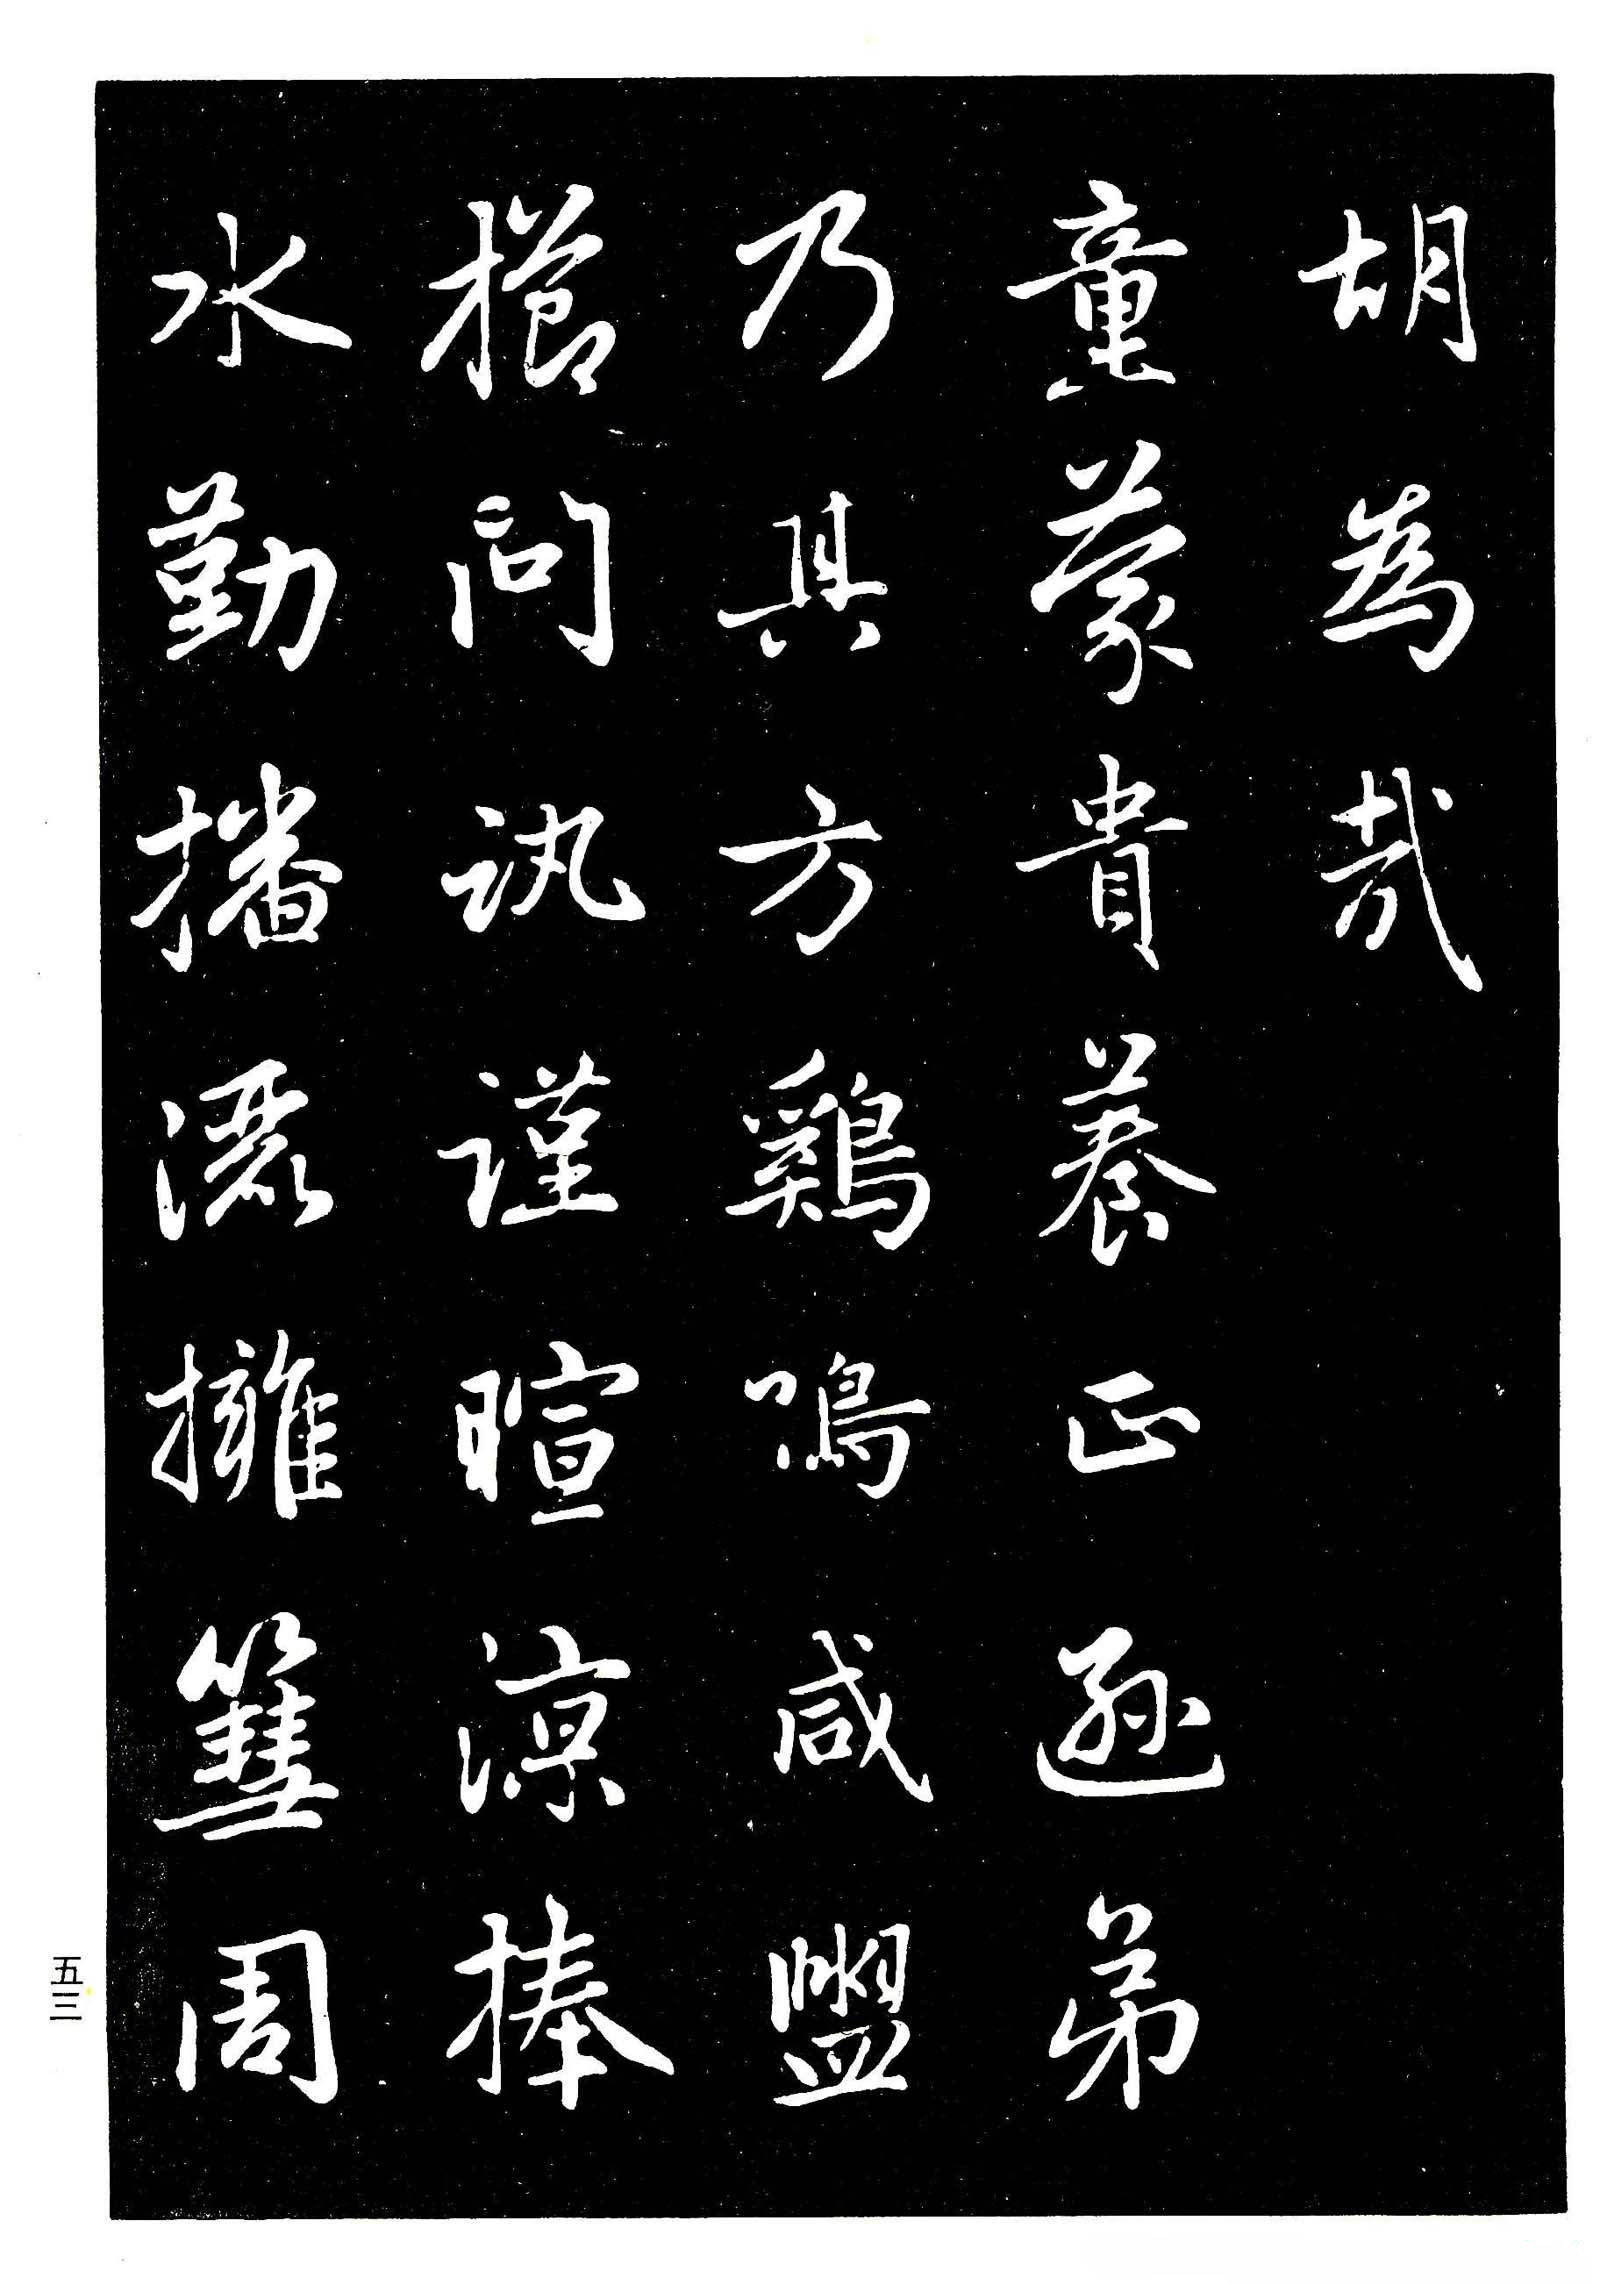 胡為哉
童蒙貴養正遜弟
乃其方雞鳴咸盥
櫛問訊謹暄涼捧
水勤播灑擁篲周
五三